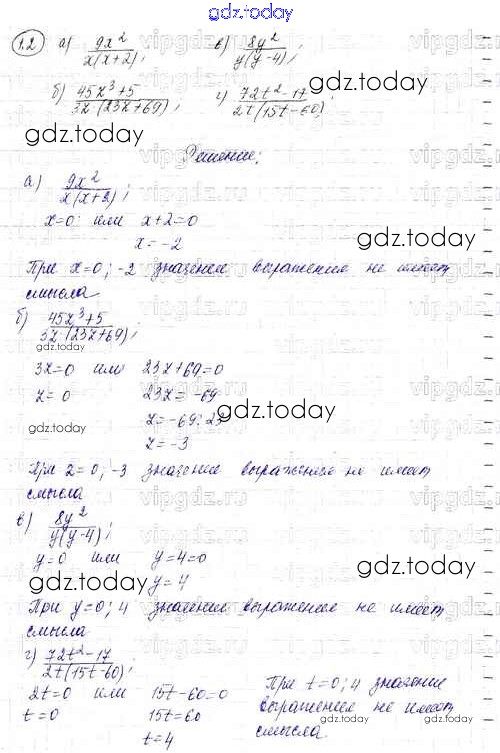 gdz.today
1.2 а) 9x²/x(x+2); в) 8y²/y(y-4);
б) 45z³+5/3z(23z+69); г) 72t²-17/2t(15t-60)
gdz.today
gdz.today
Решение:
а) 9x²/x(x+2);
x=0 или x+2=0
x=-2
gdz.today
При x=0; -2 значение выражения не имеет
смысла
б) 45z³+5/3z(23z+69);
gdz.today
3z=0 или 23z+69=0
z=0 23z=-69
z=-69:23
gdz.today
gdz.today
z=-3
При z=0; -3 значение выражения не имеет
смысла
в) 8y²/y(y-4);
y=0 или y=4=0
gdz.today
gdz.today
y=4
При y=0; 4 значение выражения не имеет
смысла
г) 72t²-17/2t(15t-60);
2t=0 или 15t-60=0
t=0 15t=60
t=4
При t=0; 4 значение
выражения не имеет
смысла
gdz.today